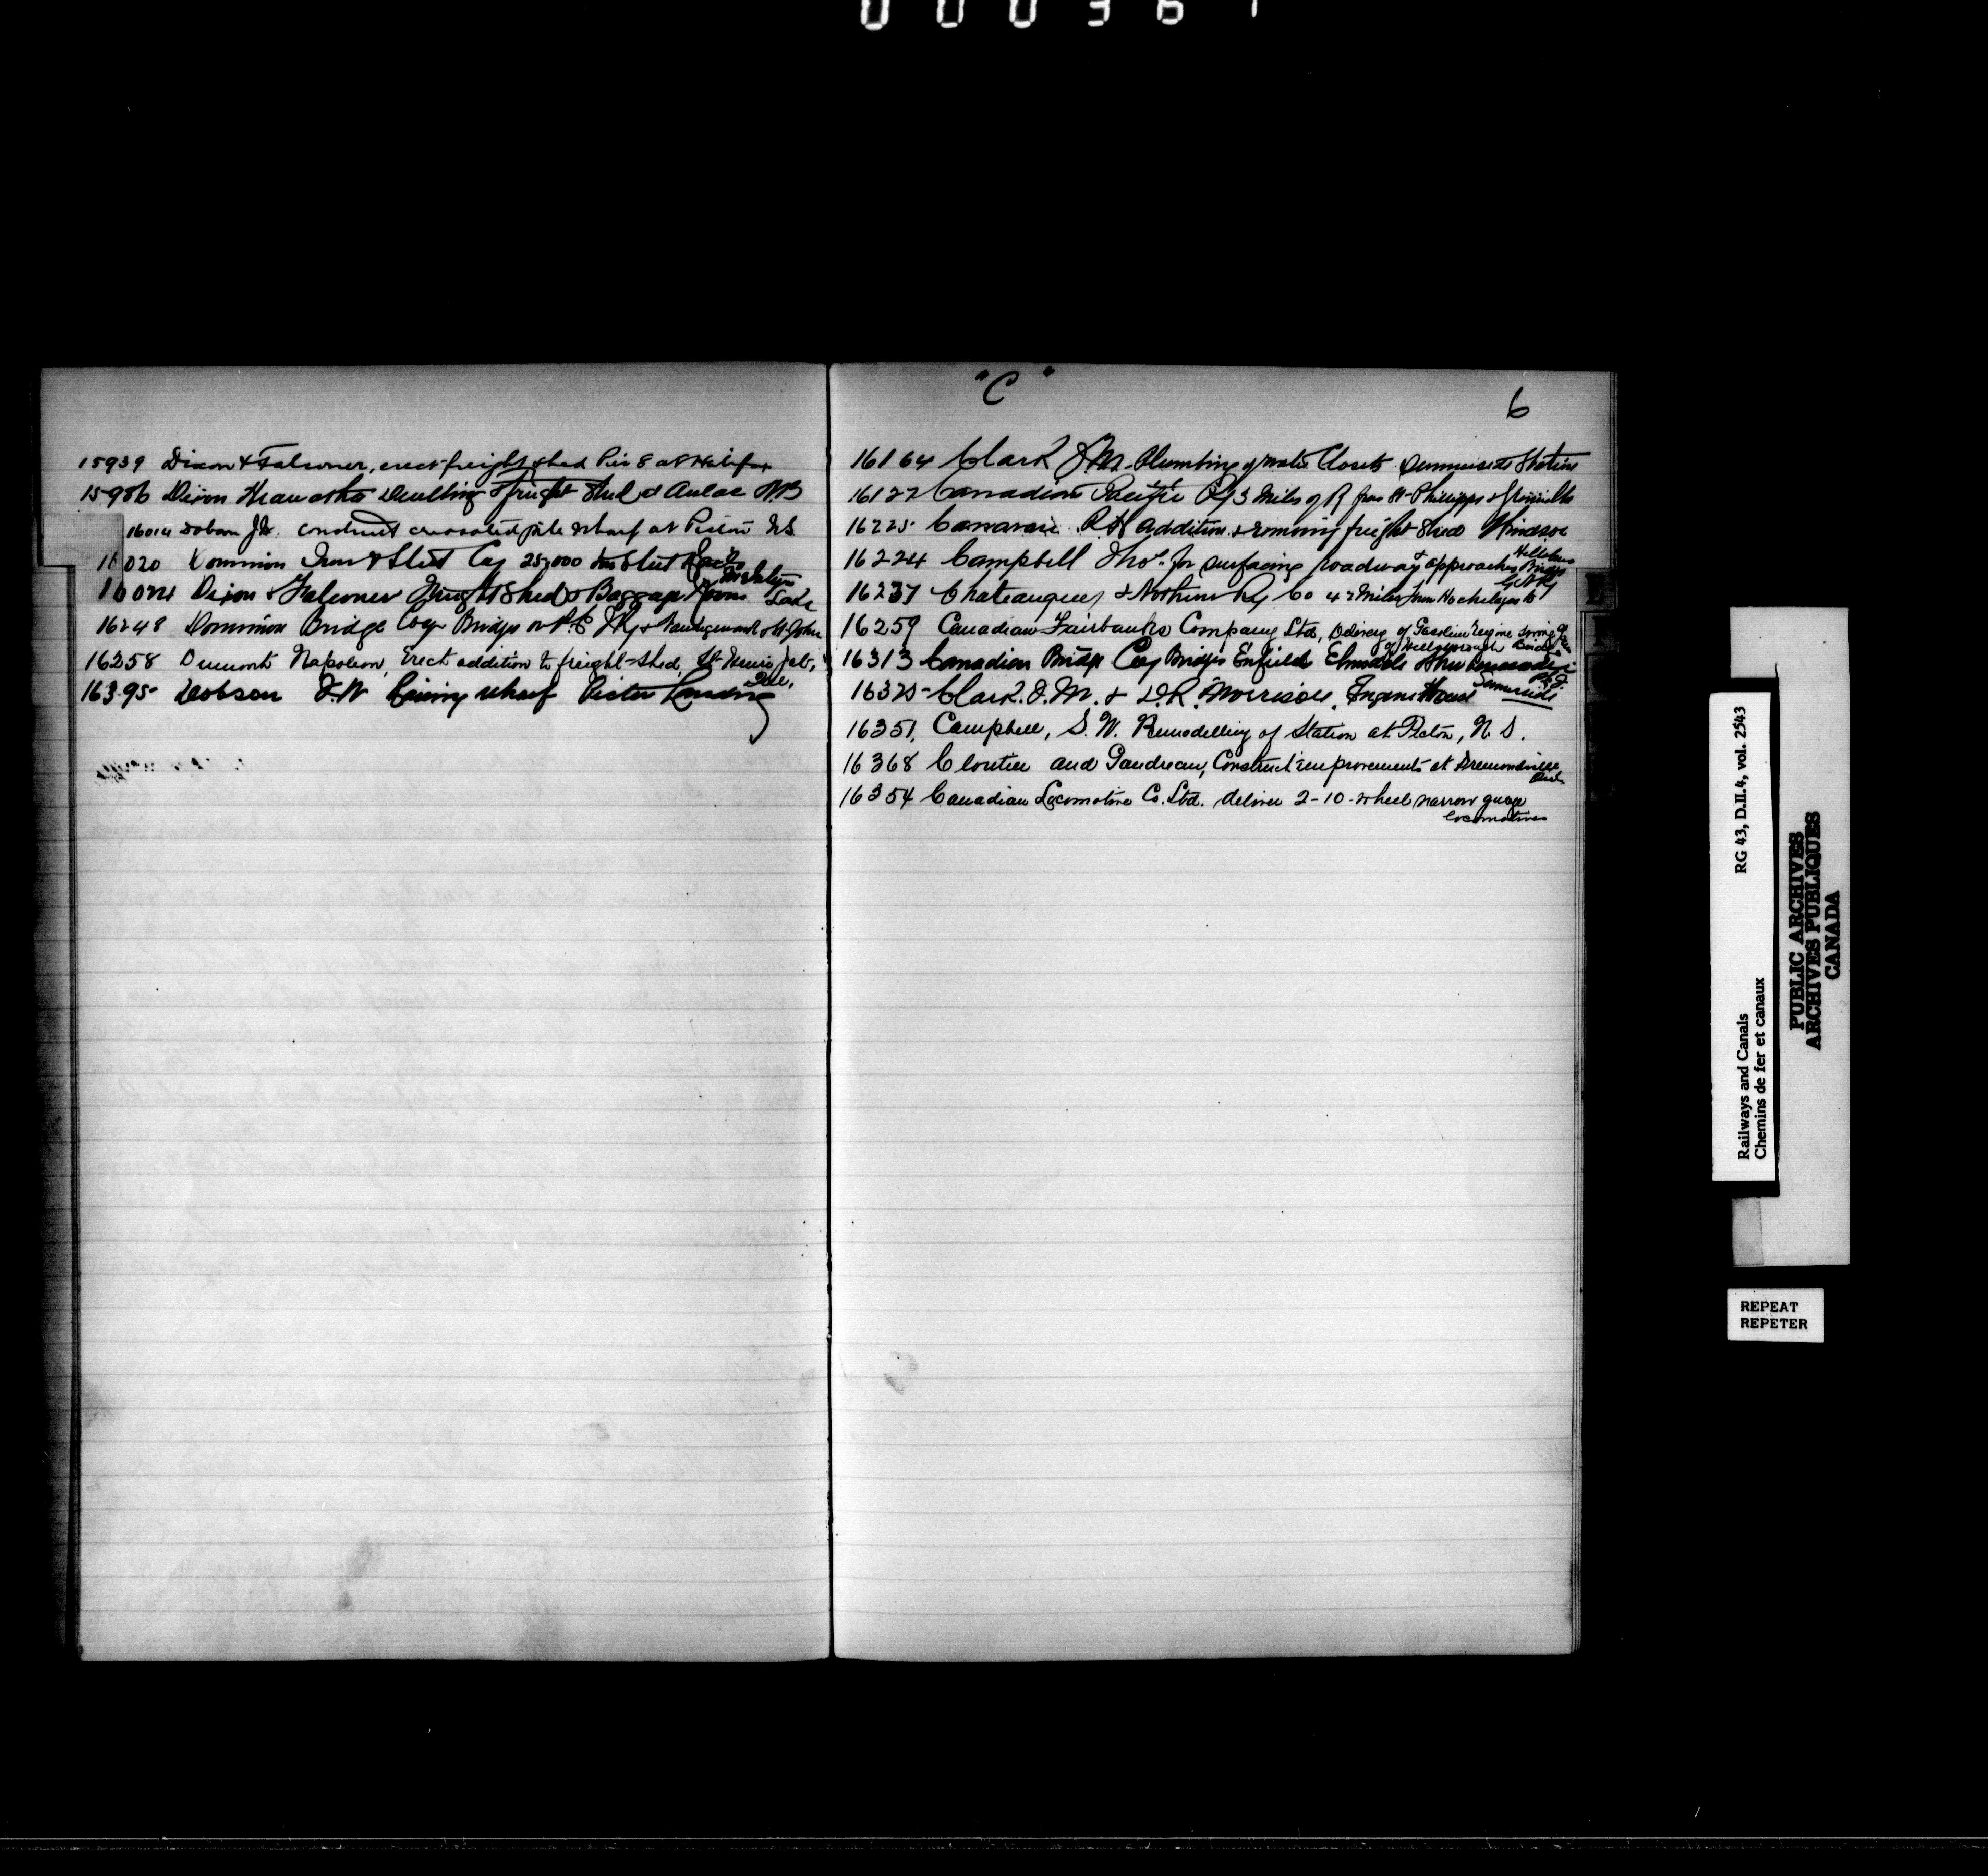 000367
15939 Dixon & Falconer, erect freight shed Pier 8 at Halifax
15986 Dixon Dwelling & freight Shed at Aulac N.B
16014 construct creosoted pile wharf at Pictou NS
16020 Dominion Iron & Steel Coy 25,000 tons Steel Rails
16024 Dixon & Falconer Freight Shed & Baggage Room
Lake
16248 Dominion Bridge Coy Bridges on & St John
16258 Dumont Napoleon, Erect addition to freight-shed, St.
Que.
16395 Dobson wharf Pictou Landing
"C"
6
16164 Clark J M. Plumbing of water Closets Summerside Station
16122 Canadian Pacific Ry 3 Miles of R from St-Philippe
16225 addition & removing freight shed Windsor
16224 Campbell Thos. for surfacing roadway & approaches
Bridge
16237 Chateauguay & Northern Ry Co 42 Miles from Hochelaga to
16259 Canadian Fairbanks Company Ltd, Delivery of Gasoline Engine
of Hillsborough Bridge
16313 Canadian Bridge Coy Bridges Enfield Elmsdale
16325 Clark. J. M. & D.R. Morrison. Engine House
Summerside
16351. Campbell, S. W. Remodelling of Station at Pictou, N. S.
16368 Cloutier and Gaudreau, Construct improvements at Drummondville
Que
16354 Canadian Locomotive Co. Ltd. deliver 2-10-wheel narrow guage
locomotives
RG 43, D.II.4, vol. 2543
Railways and Canals
Chemins de fer et canaux
PUBLIC ARCHIVES
ARCHIVES PUBLIQUES
CANADA
REPEAT
REPETER